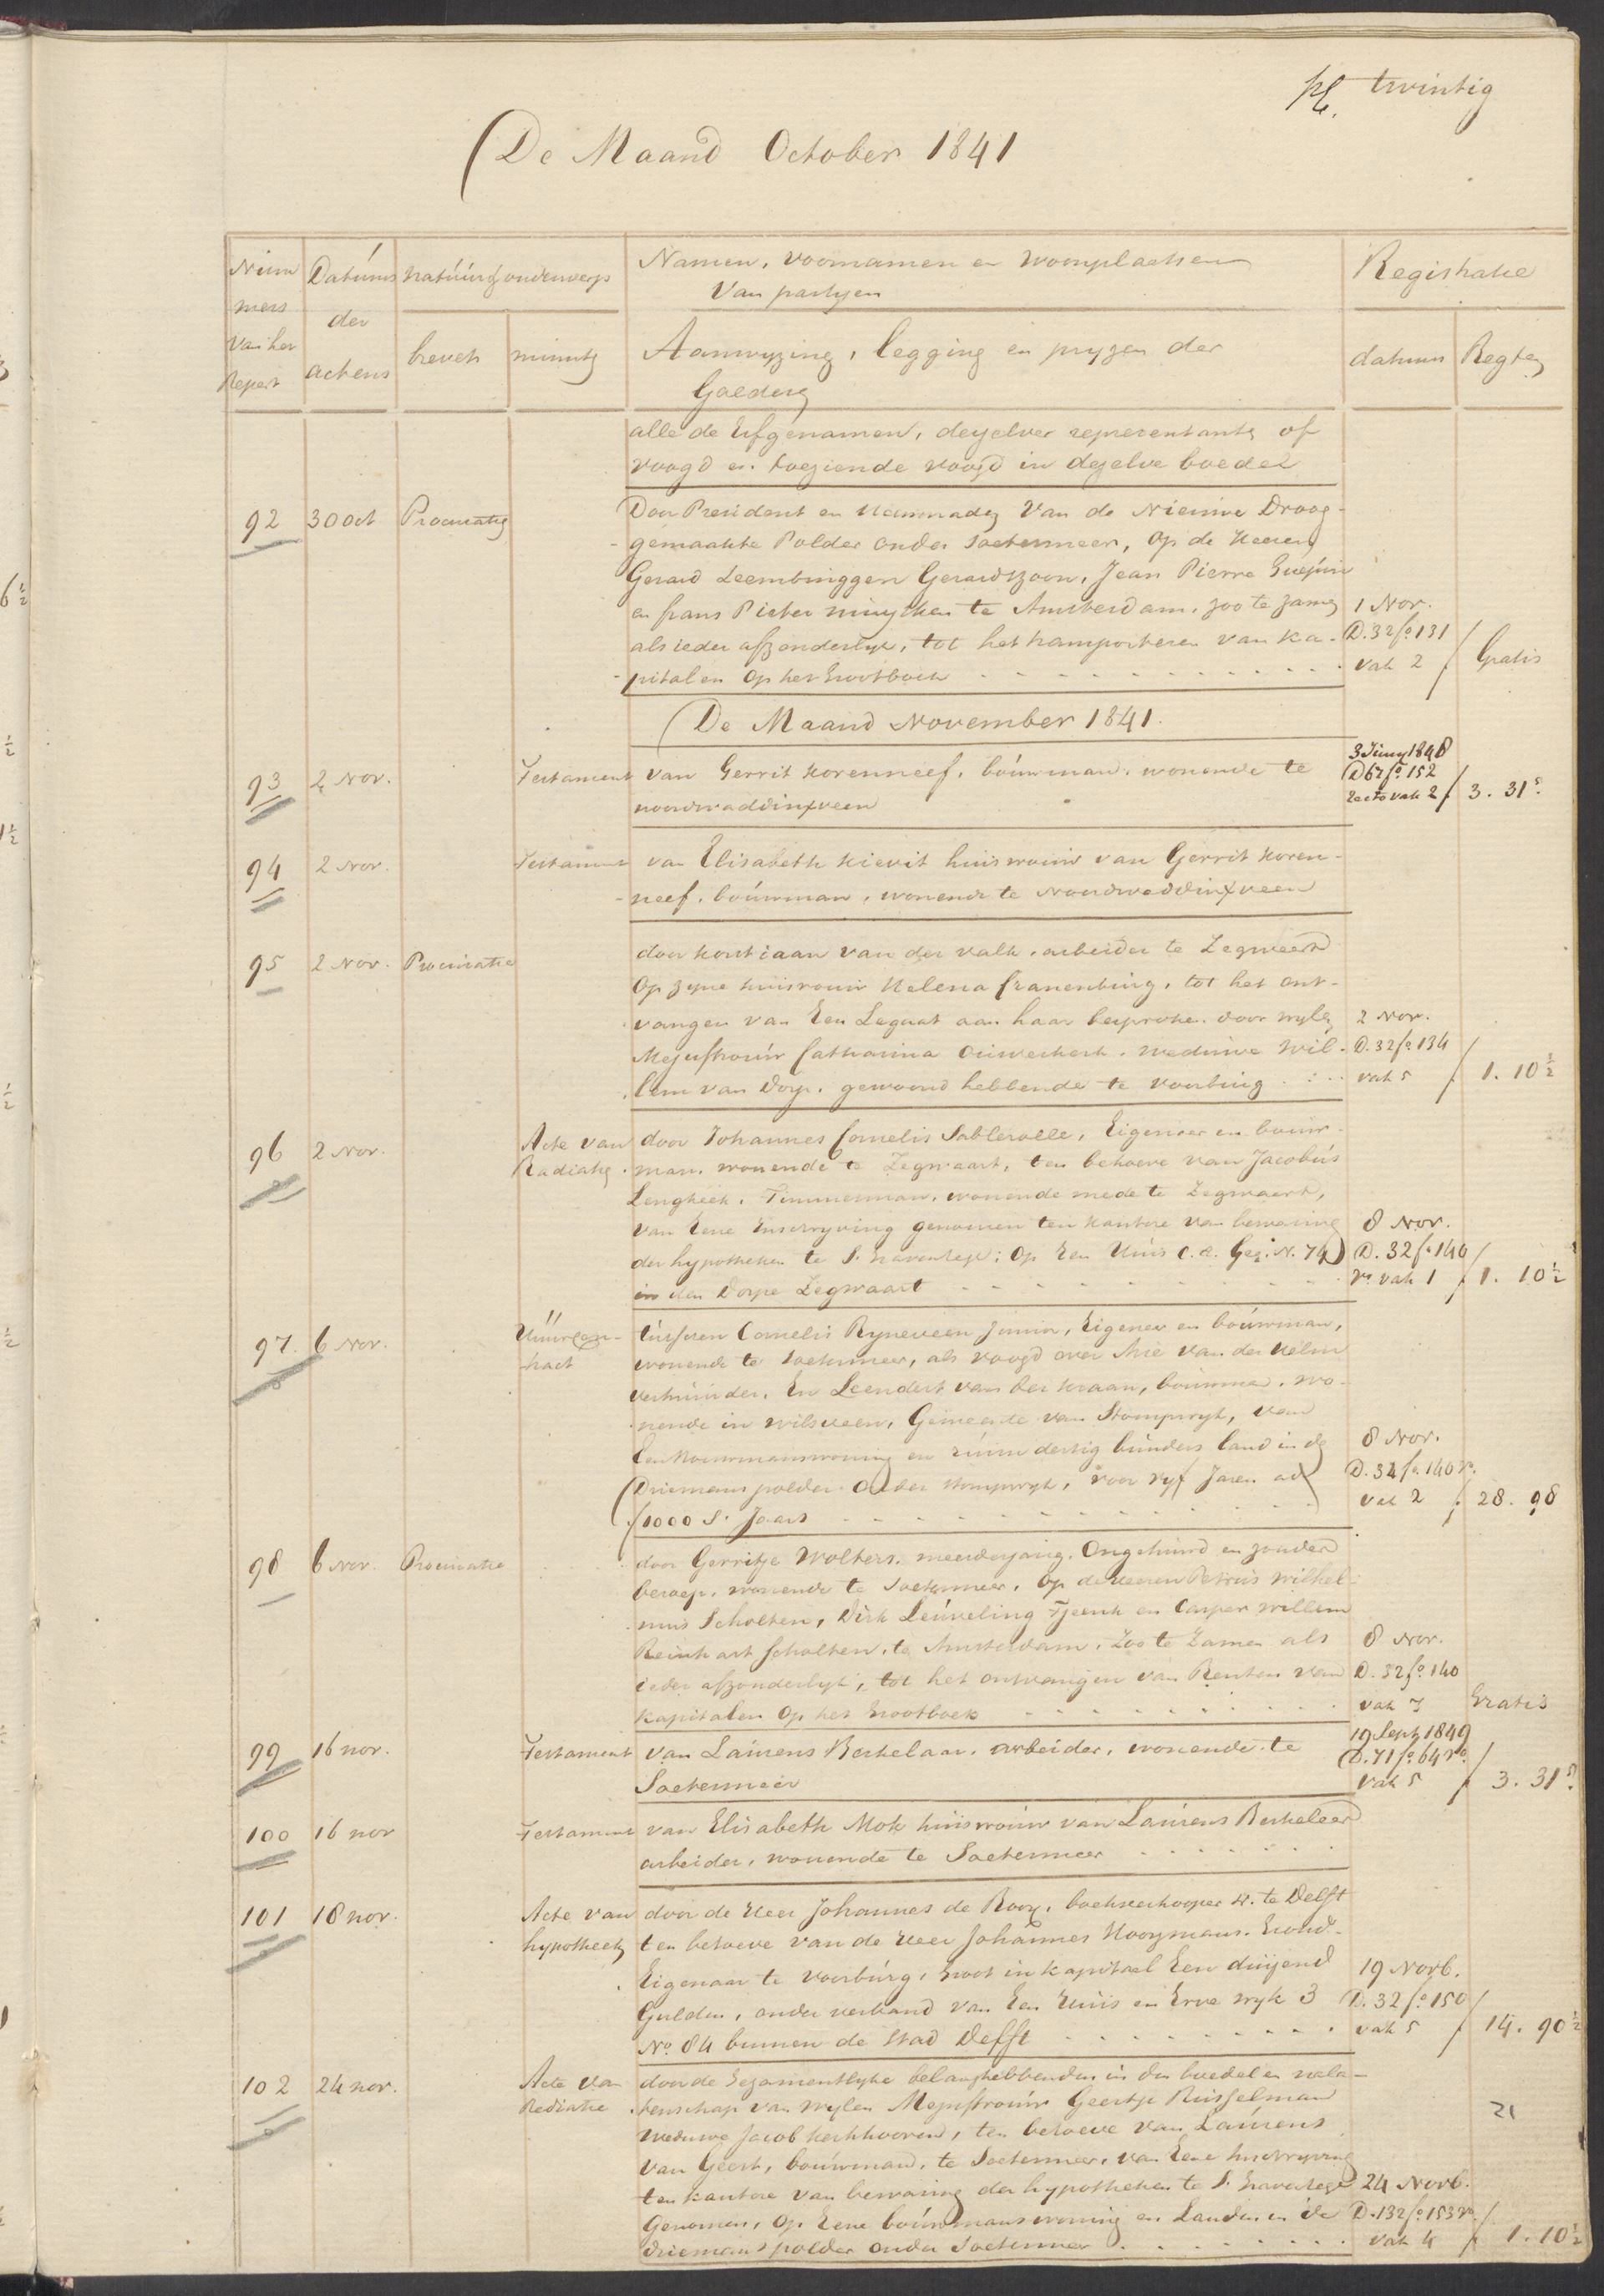 twintig
De Maand October 1841
Num
mers
van het
Repert
Datums
der
actens
natuur of onderwerp
brevets
minuts
Namen, voornamen en woonplaatsen
van partyen
Aanwyzing, legging en pryzen der
Goederen
Registratie
datums
Regten
alle de Erfgenamen, derzelver representants of
voogd en toeziende voogd in dezelve boedel
92 30 Oct Procuratie
Door President en Heemraden van de Nieuwe Droog-
gemaakte Polder onder Soetermeer, op de Heeren
Gerard Leembruggen Gerardszoon, Jean Pierre
en frans Pieter te Amsterdam, zoo te zamen
als ieder afzonderlyk, tot het transporteren van ka-
pitalen op het Grootboek
1 Nov.
D. 32 fo 131
vak 2
Gratis
De Maand November 1841.
93 2 Nov. Testament van Gerrit Korenneef, bouwman, wonende te
noordwaddinxveen
3 Juny 1848
D 67 fo 152
recto vak 2 f 3. 31 5
94 2 Nov. Testament van Elisabeth Kievit huisvrouw van Gerrit Koren-
neef, bouwman, wonende te Noordwaddinxveen
95 2 Nov. Procuratie
door van der valk, arbeider te Zegwaart
op zyne huisvrouw Helena Cranenburg, tot het ont-
vangen van Een Legaat aan haar besproken door wylen
Mejuffrouw Catharina Ouwerkerk, weduwe Wil-
lem van Dorp, gewoond hebbende te voorburg
2 Nov.
D. 32 fo 134
vak 5 f 1. 10 1/2
96 2 Nov. Acte van
Radiatie
door Johannes Cornelis Sablerolle, Eigenaar en bouw-
man, wonende te Zegwaart, ten behoeve van Jacobus
Lengkeek, Timmerman, wonende mede te Zegwaart,
van Eene Inschryving genomen ten kantore van bewaring
der hypotheken te S. Gravenhage; op Een Huis c.a. Get. N. 74
in den Dorpe Zegwaart
8 Nov.
D. 32 fo 140
vo vak 1 f 1. 10 1/2
97. 6 Nov. Huurcon-
tract
tusschen Cornelis Ryneveen Junior, Eigenaar en bouwman,
wonende te Soetermeer, als voogd over Arie van der Helm
verhuurder, En Leendert van der Kraan, bouwman, wo-
nende in wilsveen, Gemeente van Stompwyk, van
Een bouwmanswoning en ruim dertig bunders land in de
Driemanspolder onder stompwyk, voor vyf Jaren ad
f 1000 S. Jaars
8 Nov.
D. 32 fo 140 vo.
vak 2 f 28. 98
98 6 Nov. Procuratie
door Gerritje Wolters, meerderjarig, Ongehuwd en zonder
beroep, wonende te Soetermeer, op de Heeren Petrus Wilhel-
mus Scholten, Dirk Leuveling Tjeenk en Casper Willem
Reinhart Scholten, te Amsterdam, Zoo te Zamen als
ieder afzonderlyk, tot het ontvangen van Renten van
kapitalen op het Grootboek
8 Nov.
D. 32 fo. 140
vak 7
Gratis
99 16 nov. Testament van Laurens Berkelaar, arbeider, wonende te
Soetermeer
19 Sept 1849
D. 71 fo 64 vo.
vak 5 f 3. 31 5
100 16 nov Testament van Elisabeth Mok huisvrouw van Laurens Berkelaar
arbeider, wonende te Soetermeer
101 18 nov. Acte van
hypotheek
door de Heer Johannes de Rooy, boekverkooper te Delft
ten behoeve van de Heer Johannes Hooymans, Grond-
Eigenaar te Voorburg, groot in kapitaal Een duizend
Gulden, onder verband van Een Huis en Erve wyk 3
No. 84 binnen de Stad Delft
19 Novb.
D. 32 fo 150
vak 5 f 14. 90 1/2
102 24 nov. Acte van
Radiatie
door de Gezamentlyke belanghebbenden in den boedel en nala-
tenschap van wylen Mejuffrouw Geertje Russelman
Weduwe Jacob Kerkhooven, ten behoeve van Laurens
van Geest, bouwman, te Soetermeer, van Eene Inschryving
ten kantore van bewaring der hypotheken te S. Gravenhage
Genomen, op Eene bouwmanswoning en Landen in de
driemanspolder onder Soetermeer
24 Novb.
D. 132 fo 153 vo
vak 4 f 1. 10 1/2
21